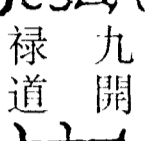 九開
禄道